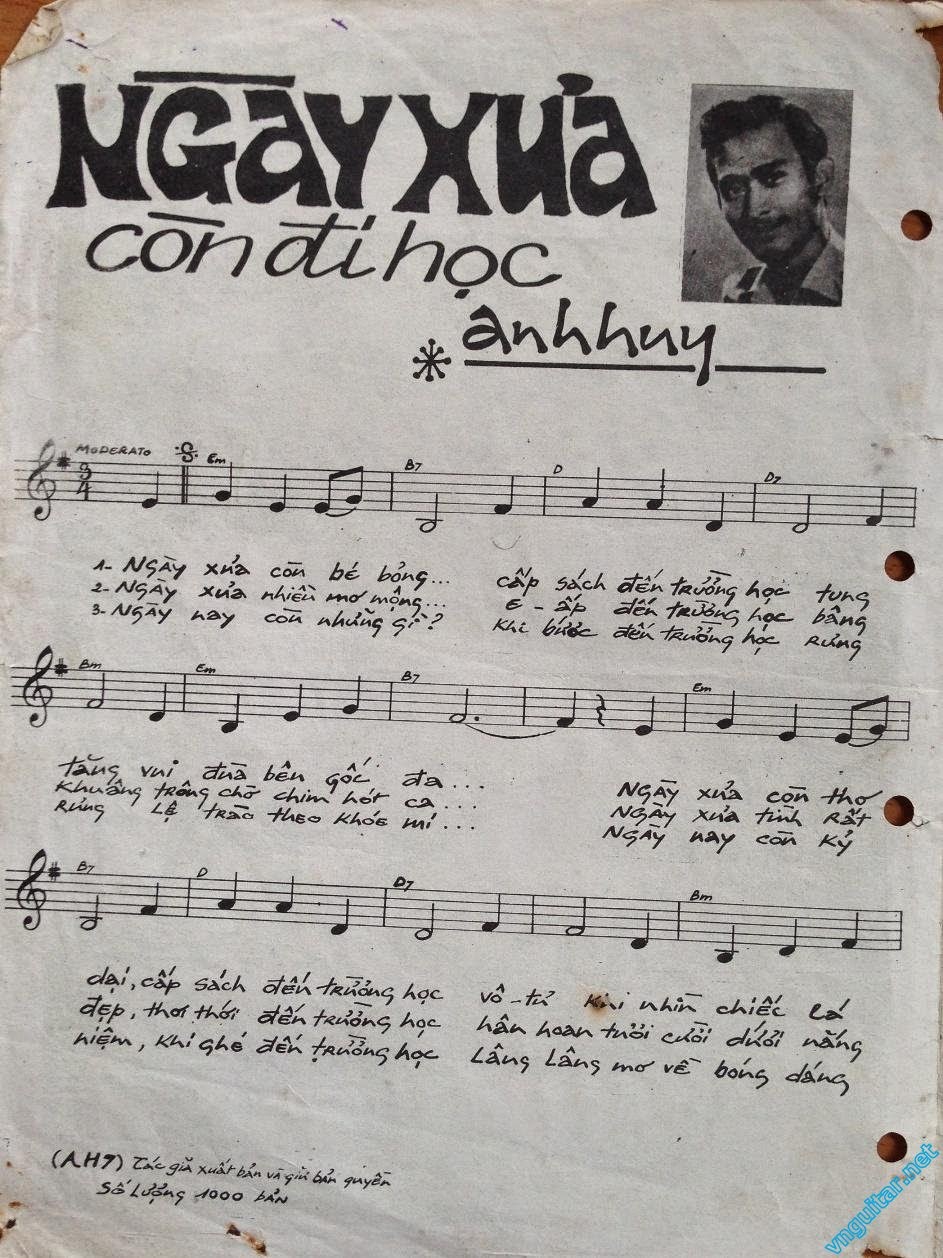 NGÀY XƯA
còn đi học
* anh huy
MODERATO
3
4
Em B7 D D7
1- NGÀY xưa còn bé bỏng... cấp sách đến trường học tung
2- NGÀY xưa nhiều mơ mộng... E - ấp đến trường học bâng
3- NGÀY nay còn những gì? khi bước đến trường học rưng
Bm Em B7 Em
tăng vui đùa bên gốc đa... NGÀY xưa còn thơ
khuâng trông chờ chim hót ca... NGÀY xưa tình rất
rưng lệ trào theo khóe mi... NGÀY nay còn kỷ
B7 D D7 Bm
dại, cấp sách đến trường học vô-tư khi nhìn chiếc lá
đẹp, thơ thới đến trường học hân hoan tươi cười dưới nắng
niệm, khi ghé đến trường học lâng lâng mơ về bóng dáng
(A.H7) Tác giả xuất bản và giữ bản quyền
Số lượng 1000 bản
vnguitar.net